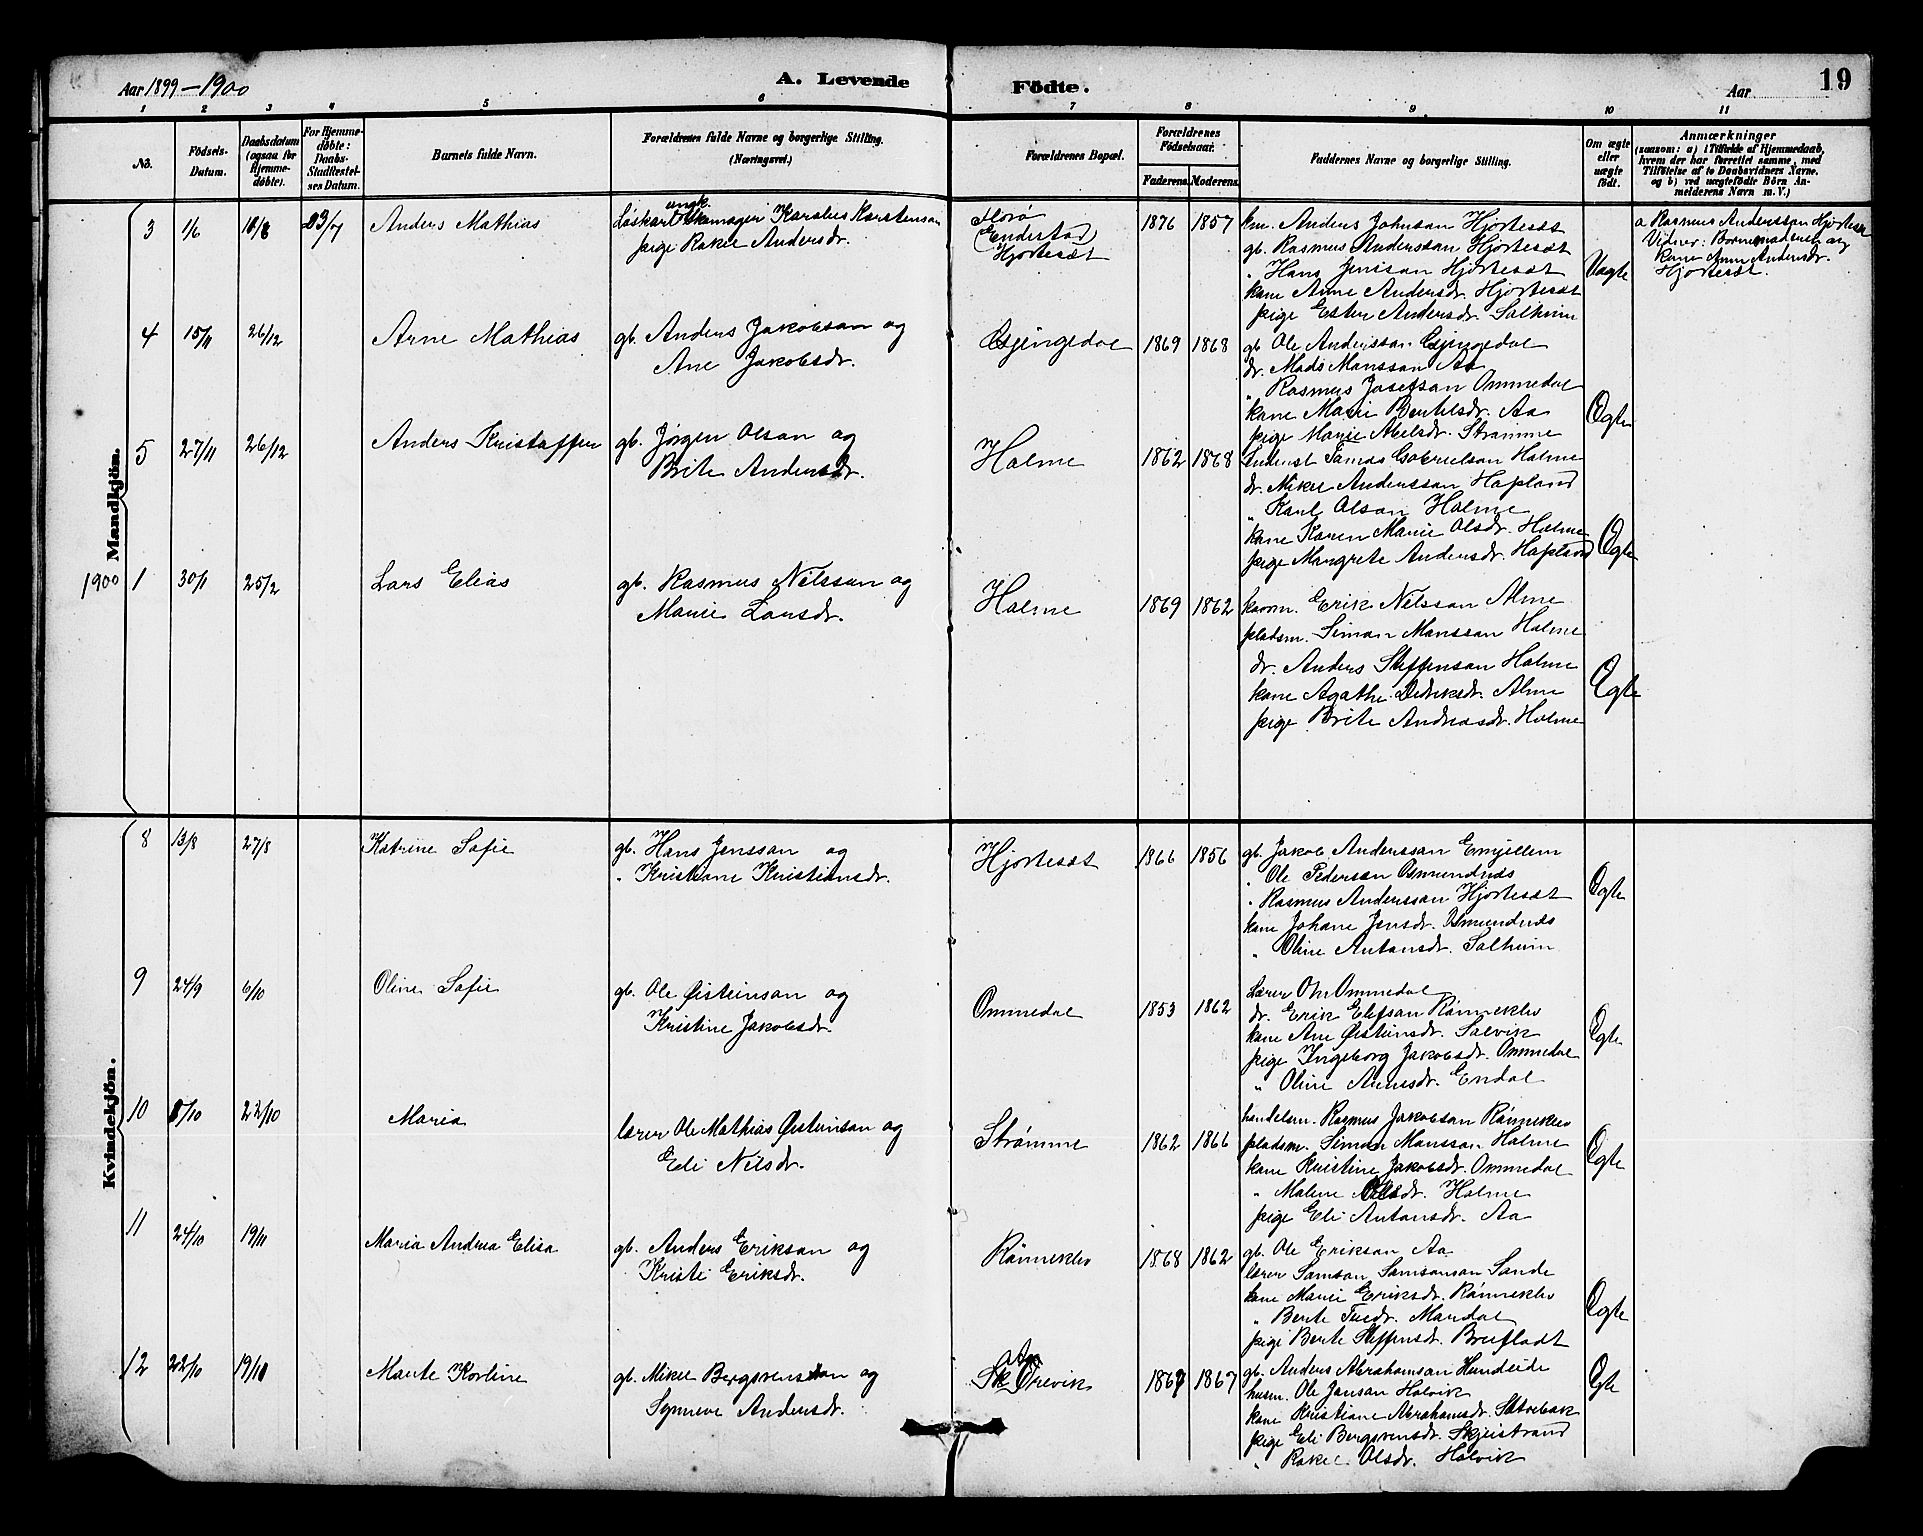 Aar 1899–1900 A. Levende Födte. Aar 19
1 2 3 4 5 6 7 8 9 10 11
No. Födsels-Datum. Daabsdatum (ogsaa for Hjemme-døbte). For Hjemme-døbte: Daabs-Stadfæstel-ses Datum. Barnets fulde Navn. Forældrenes fulde Navne og borgerlige Stilling. (Næringsvei.) Forældrenes Bopæl. Forældrenes Födselsaar. Faderens. Moderens. Faddernes Navne og borgerlige Stilling. Om ægte eller uægte födt. Anmærkninger (saasom: a) i Tilfælde af Hjemmedaab, hvem der har forrettet samme, med Tilföielse af to Daabsvidners Navne. og b) ved uægtefödte Börn An-melderens Navn m. V.)
Mandkjön.
3 1/6 23/7 Anders Mathias
ungk. Karstensen
pige Rakel Andersdr.
Florø
(Endestad)
Hjortesæt
1876 1857
km. Anders Johnsan Hjortesæt
gb. Rasmus Anderssan Hjortesæt
" Hans Jenssan Hjortesæt
kone Anne Andersdr. Hjortesæt
pige Ester Andersdr. Solheim
Uægte
a Rasmus Anderssan Hjortesæt
Vidner: Barnemoderen og
kone Anne Andersdr.
Hjortesæt.
4 15/11 26/12 Arne Mathias
gb. Anders Jakobsan og
Ane Jakobsdr.
Gjengedal 1869 1868
gb. Ole Anderssan Gjengedal
dr. Mads Manssan Aa
" Rasmus Josefsan Ommedal
kone Marie Bertelsdr. Aa
pige Marie Abelsdr. Strømme
Ægte
5 27/11 26/12 Anders Kristaffer
gb. Jørgen Olsan og
Brite Andersdr.
Holme 1862 1868
Tamas Gabrielsan Holme
dr. Mikel Anderssan Hopland
" Karl Olsan Holme
kone Karen Marie Olsdr. Holme
pige Margrete Andersdr. Hopland
Ægte
1900 1 30/1 25/2 Lars Elias
gb. Rasmus Nilssan og
Marie Larsdr.
Holme 1869 1862
kaarm. Erik Nilssan Alme
pladsm. Simon Manssan Holme
dr. Anders Steffensan Holme
kone Agathe Didriksdr. Alme
pige Brite Andreasdr. Holme
Ægte
Kvindekjön.
8 13/8 27/8 Katrine Sofie
gb. Hans Jenssan og
" Kristiane Kristiansdr.
Hjortesæt 1866 1856
gb. Jakob Anderssan Emjellem
" Ole Pedersan Osmundnæs
" Rasmus Anderssan Hjortesæt
kone Johane Jensdr. Osmundnæs
" Oline Antansdr. Solheim
Ægte
9 24/9 6/10 Oline Sofie
gb. Ole Øisteinsan og
Kristine Jakobsdr.
Ommedal 1853 1862
Lærer Ole Ommedal
dr. Erik Elefsan Rønneklev
kone Ane Øisteinsdr. Solvik
pige Ingeborg Jakobsdr. Ommedal
" Oline Endal
Ægte
10 8/10 22/10 Maria
lærer Ole Mathias Øisteinsan og
Eli Nilsdr.
Strømme 1862 1866
handelsm. Rasmus Jakobsan Rønneklev
pladsm. Simon Manssan Holme
kone Kristine Jakobsdr. Ommedal
" Malene Holme
pige Eli Antansdr. Aa
Ægte
11 24/10 19/11 Maria Andrea Elisa
gb. Anders Eriksan og
Kristi Eriksdr.
Rønneklev 1868 1862
gb. Ole Eriksan Aa
lærer Samson Samsonsan Sande
kone Marie Eriksdr. Rønneklev
" Berte Mardal
pige Berte Steffensdr. Breifladt
Ægte
12 22/10 19/11 Korline
gb. Mikel Bergsvenssan og
Synneve Andersdr.
Ørevik 1867 1867
gb. Anders Abrahamsan Hundeide
husm. Ole Jansan Holvik
kone Kristiane Abrahamsdr.
pige Eli Bergsvensdr. Skjeistrand
" Rakel Olsdr. Holvik
Ægte